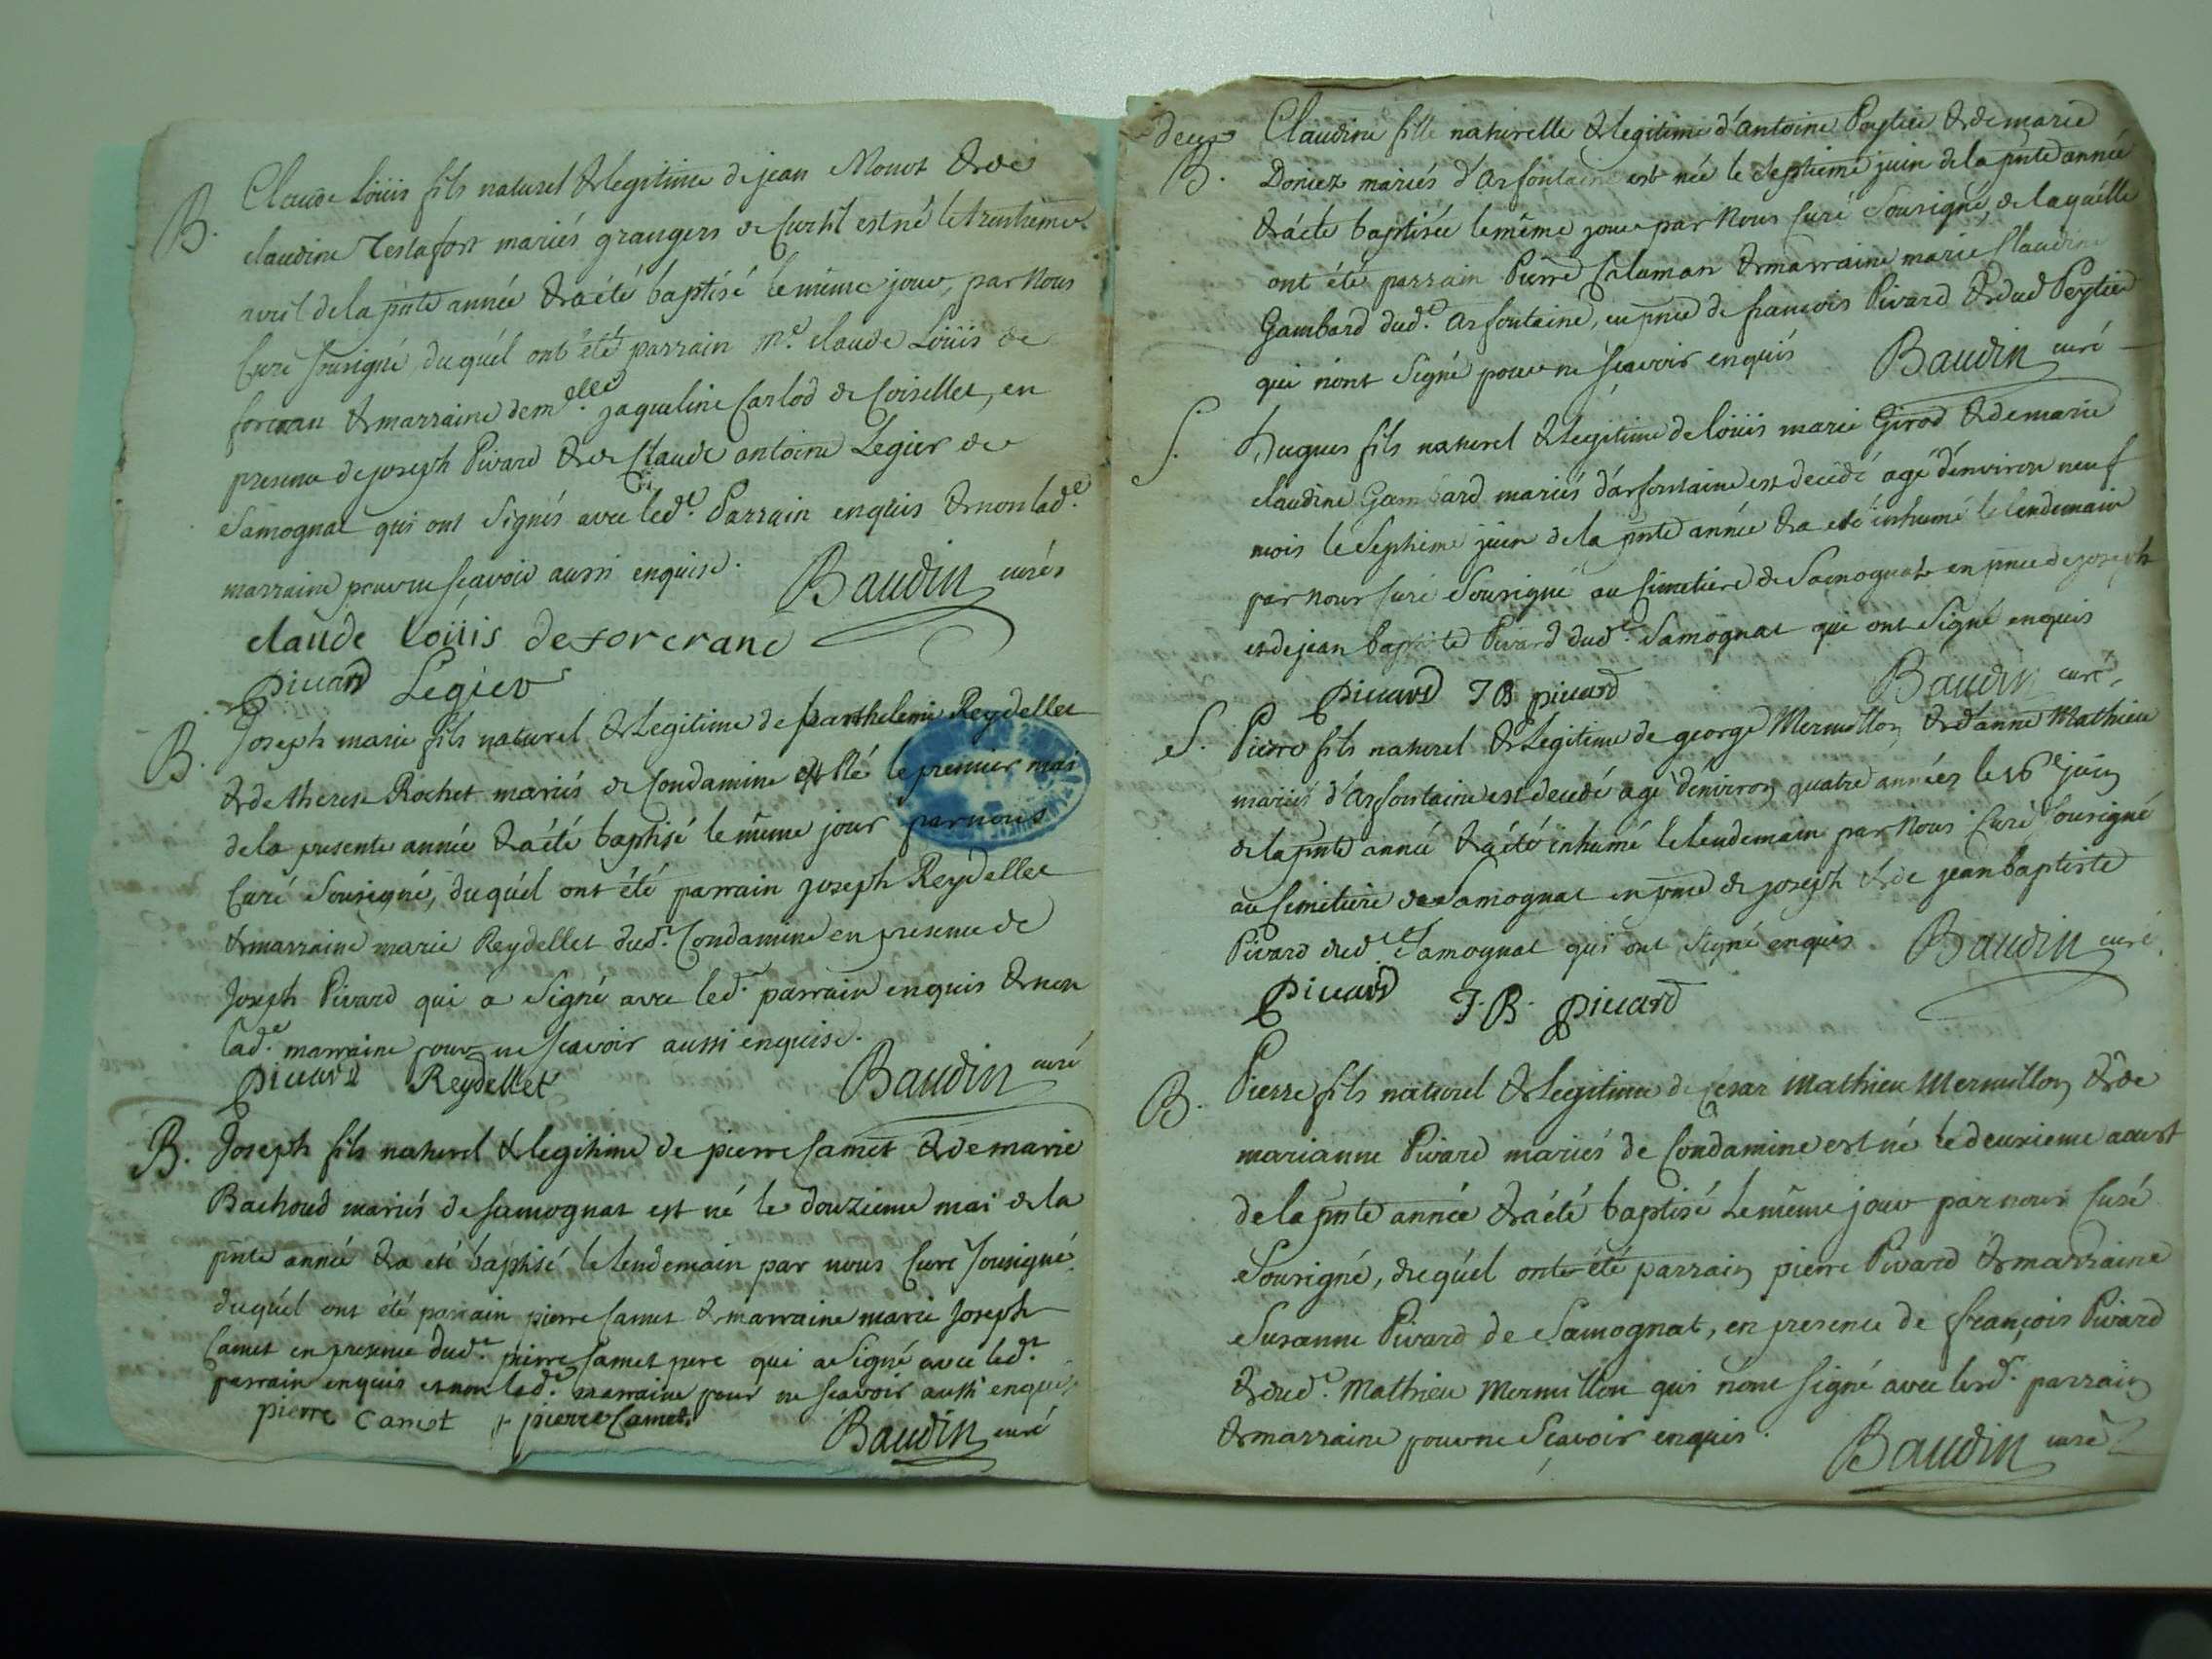 B. Claude Loüis fils naturel & legitime de jean Monot & de
claudine Testafort mariés grangers de Curtil est né le trentieme
avril de la pnte année & a été baptisé le même jour, par nous
Curé sousigné, duquél ont été parrain Mr. claude Loüis de
forcran & marraine demelle. jaqueline Carlod de Coiselet, en
presence de joseph Pivard & de Claude antoine Legier de
Samognat qui ont signés avec led. Parrain enquis & non lad.e
marraine pour ne sçavoir aussi enquise. Baudin curé
claude loüis deforcrand
pivard Legier
B. Joseph marie fils naturel & legitime de barthelemi Reydellet
& de therese Rochet mariés de Condamine est Né le premier mai
de la presente année & a été baptisé le même jour par nous
Curé sousigné, duquél ont été parrain joseph Reydellet
& marraine marie Reydellet dud. Condamine en presence de
Joseph Pivard qui a signé avec led. parrain enquis & non
lad.e marraine pour ne sçavoir aussi enquise.
pivard Reydellet Baudin curé
B. Joseph fils naturel & legitime de pierre Camet & de marie
Bachoud mariés de samognat est né le douzieme mai de la
pnte année & a été baptisé le lendemain par nous Curé sousigné
duquél ont été parrain pierre Camet & marraine marie Joseph
Camet en presence dud. pierre Camet pere qui a signé avec led.
parrain enquis et non lad.e marraine pour ne sçavoir aussi enquise
pierre camet pierre Camet Baudin curé
deux Claudine fille naturelle & legitime d'antoine Peytier & de marie
B. Doniez mariés d'arfontaine est née le septieme juin de la pnte année
& a été baptisée le même jour par Nous Curé sousigné, de laquélle
ont été parrain Pierre Calaman & marraine marie Claudine
Gambard dud. arfontaine, en pnce de françois Pivard & dud Peytier
qui n'ont signé pour ne sçavoir enquis Baudin curé
S. hugues fils naturel & legitime de loüis marie Girod & de marie
claudine Gambard mariés d'arfontaine est decedé agé d'environ neuf
mois le septieme juin de la pnte année & a eté inhumé le lendemain
par nous curé sousigné au Cimetiere de Samognat en pnce de joseph
et de jean baptiste Pivard dud. Samognat qui ont signé enquis
pivard J B pivard Baudin curé
S. Pierre fils naturel & legitime de george Mermillon & d'anne Mathieu
mariés d'arfontaine est decedé agé d'environ quatre années le 16e juin
de la pnte année & a été inhumé le lendemain par Nous Curé sousigné
au Cimetiere de Samognat en pnce de joseph & de jean baptiste
Pivard dud. Samognat qui ont signé enquis. Baudin curé
pivard J. B. pivard
B. Pierre fils naturel & legitime de Cesar Mathieu Mermillon & de
marianne Pivard mariés de Condamine est né le deuxieme aoust
de la pnte année & a été baptisé le même jour par nous Curé
Sousigné, duquél ont été parrain pierre Pivard & marraine
Susanne Pivard de Samognat, en presence de françois Pivard
& dud. Mathieu Mermillon qui n'ont signé avec lesd. parrain
& marraine pour ne sçavoir enquis. Baudin curé